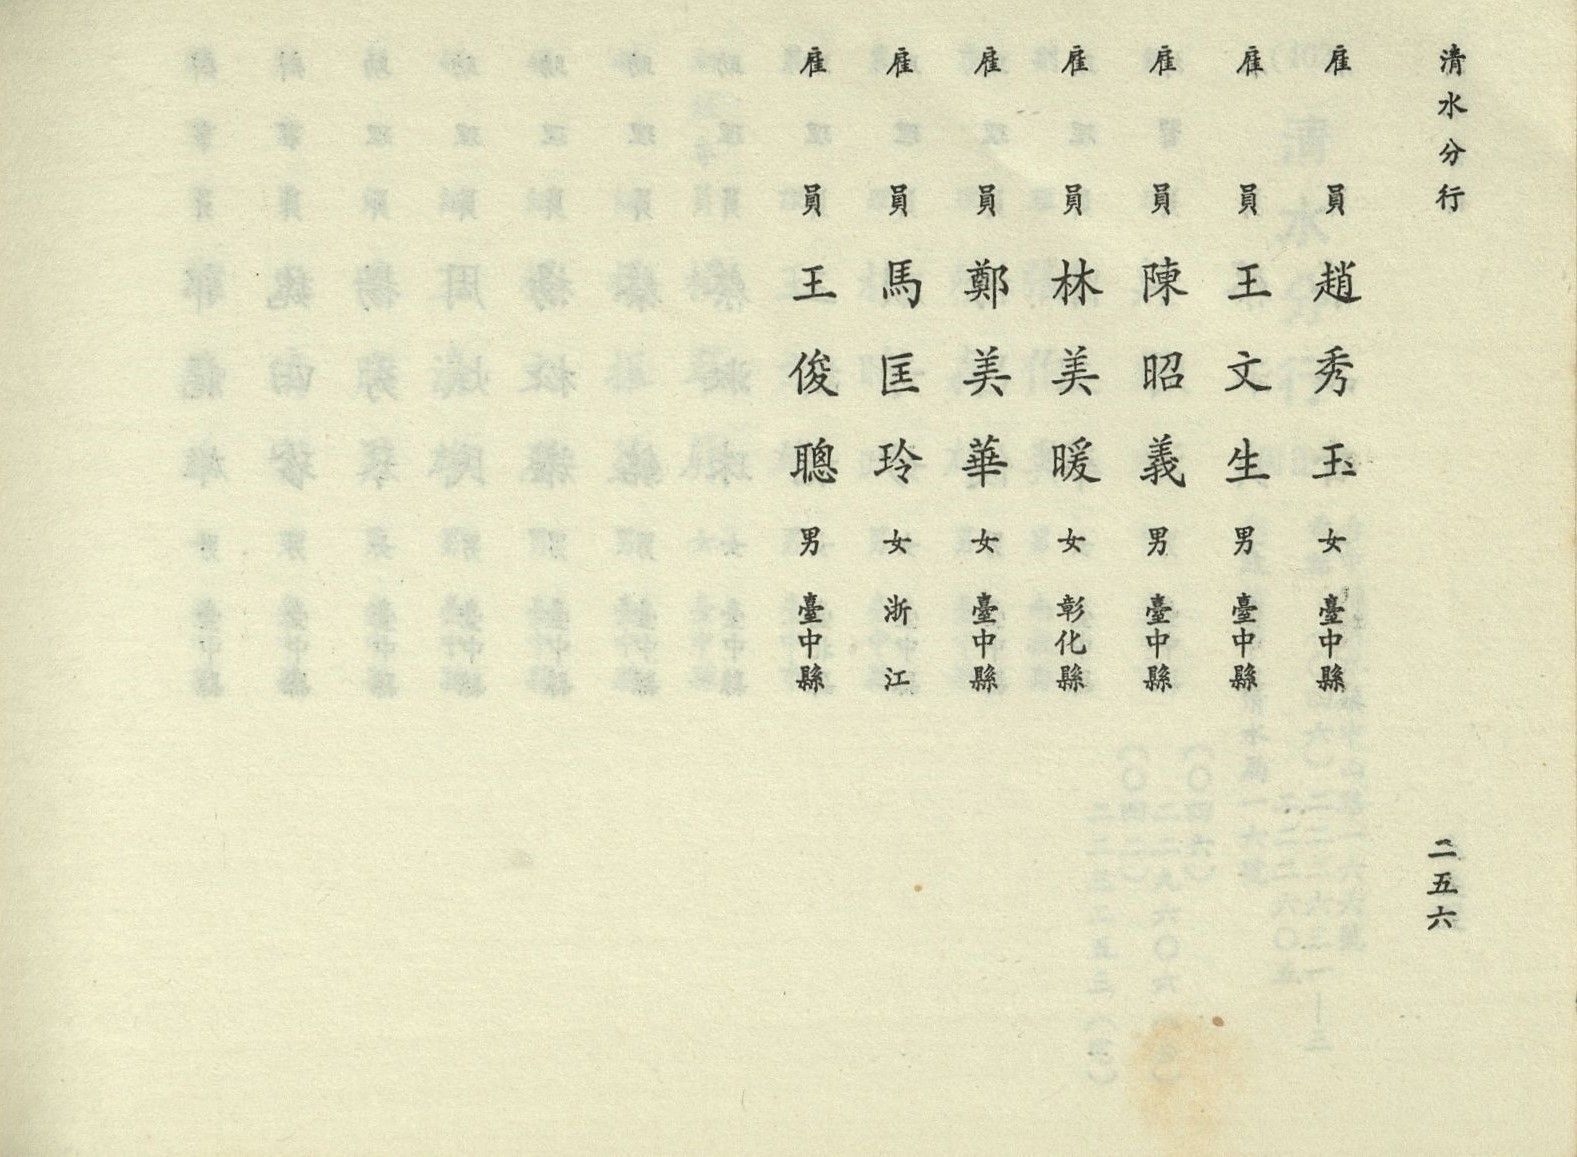 清水分行
二五六
雇員趙秀玉女臺中縣
雇員王文生男臺中縣
雇員陳昭義男臺中縣
雇員林美暖女彰化縣
雇員鄭美華女臺中縣
雇員馬匡玲女浙江
雇員王俊聰男臺中縣